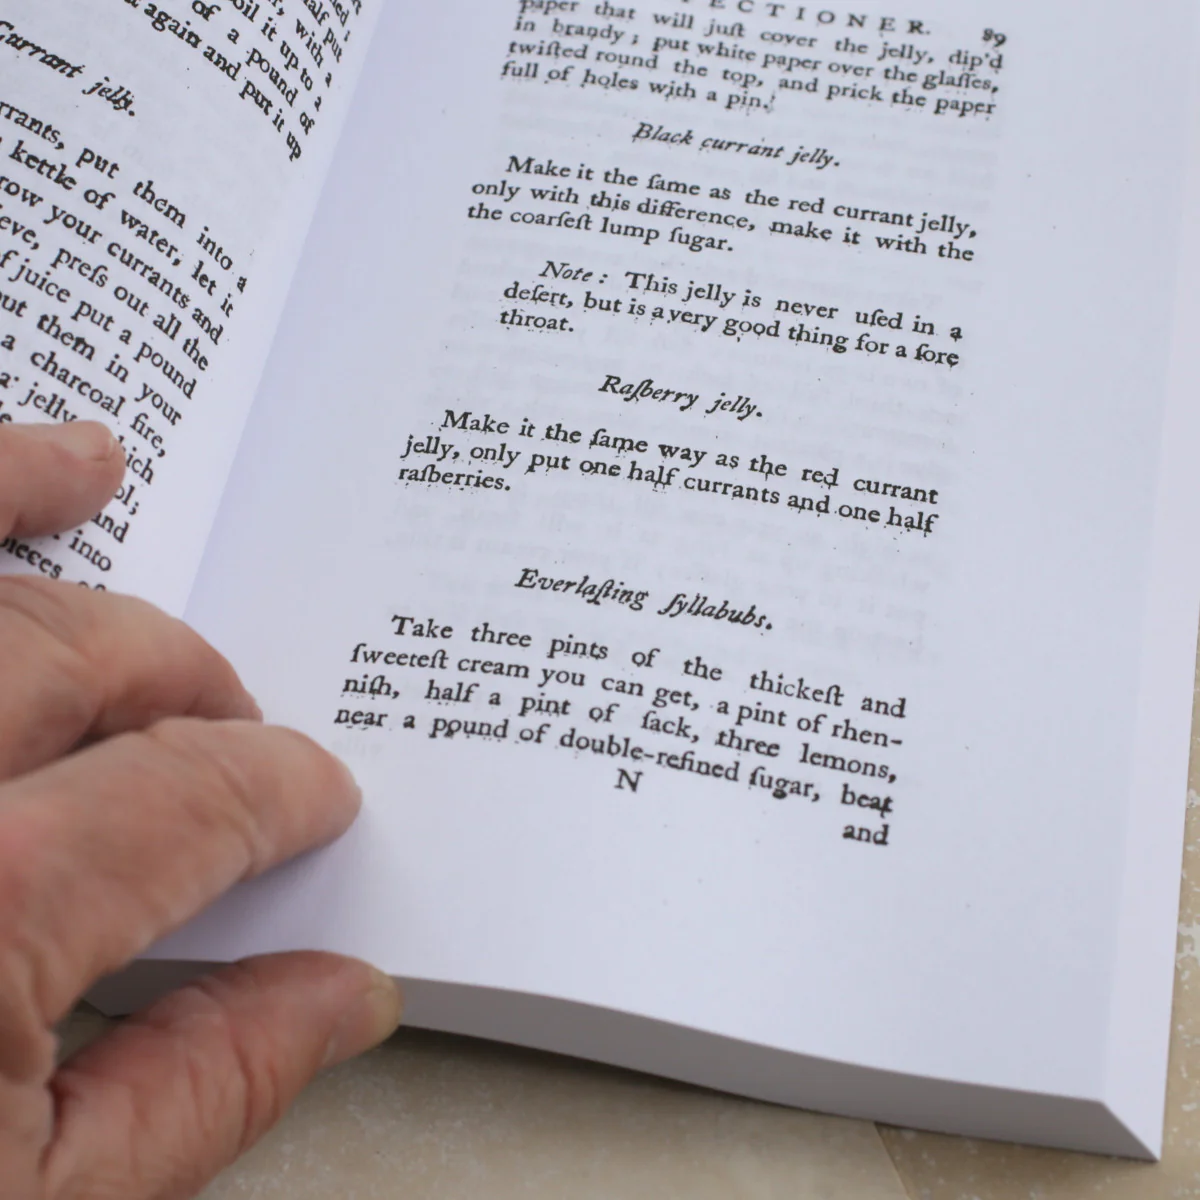 half put
, with a
oil it up to a
of a pound of
again and put it up
Currant jelly.
rrants, put them into a
kettle of water, let it
row your currants and
eve, preſs out all the
f juice put a pound
out them in your
a charcoal fire,
jelly which
and
into
pieces of
ECTIONER. 89
paper that will juſt cover the jelly, dip'd
in brandy; put white paper over the glaſſes,
twiſted round the top, and prick the paper
full of holes with a pin.
Black currant jelly.
Make it the ſame as the red currant jelly,
only with this difference, make it with the
the coarſeſt lump ſugar.
Note: This jelly is never uſed in a
deſert, but is a very good thing for a ſore
throat.
Raſberry jelly.
Make it the ſame way as the red currant
jelly, only put one half currants and one half
raſberries.
Everlaſting ſyllabubs.
Take three pints of the thickeſt and
ſweeteſt cream you can get, a pint of rhen-
niſh, half a pint of ſack, three lemons,
near a pound of double-refined ſugar, beat
N
and